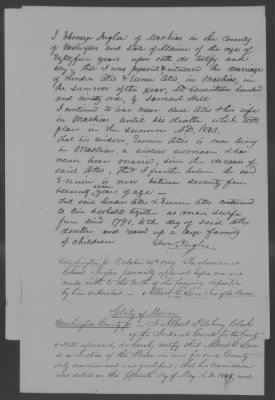 I Ebenezer Inglee of Machias in the County
of Washington and State of Maine of the age of
Eighty five years upon oath do testify and
say, that I was present & witnessed the marriage
of and Eunice in Machias, in
the summer of the year, AD seventeen hundred
and ninety one, by Hill
I continued to live near said & his wife
in Machias until his death which took
place in the summer AD,
That his widow, Eunice is now living
in Machias, a widow woman, has
never been married, since the decease of
said that I further believe the said
Eunice is now between seventy five
seventy years of age
that said & Eunice continued
to live together as man & wife
from said 1791, to the day of said
death and reared up a large family
of children Eben Inglee
Washington ss. October 20th The above named
Inglee personally appeared before me and
made oath to the truth of the foregoing deposition
by him subscribed — Albert G. Lane of the Peace
State of Maine
Washington County ss. I Albert Pilsbury Clerk
of the Judicial Courts for the County
& State aforesaid, do hereby certify that Albert G. Lane
is a Justice of the Peace in and for said County
duly commissioned and qualified; that his Commission
was dated on the fifteenth day of May A.D. and